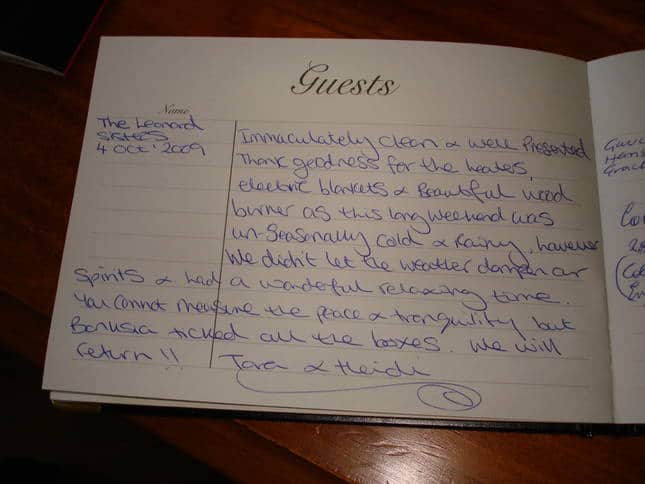 Guests
Name
The Leonard
Sisters
4 Oct '2009
Immaculately clean & well Presented
Thank goodness for the heaters,
electric blankets & Beautiful wood
burner as this long weekend was
un-Seasonally cold & Rainy, however
We didn't let the weather dampen our
Spirits & had a wonderful relaxing time.
You cannot measure the peace & tranquility but
Banksia ticked all the boxes. We will
return!!
Tara & Heidi